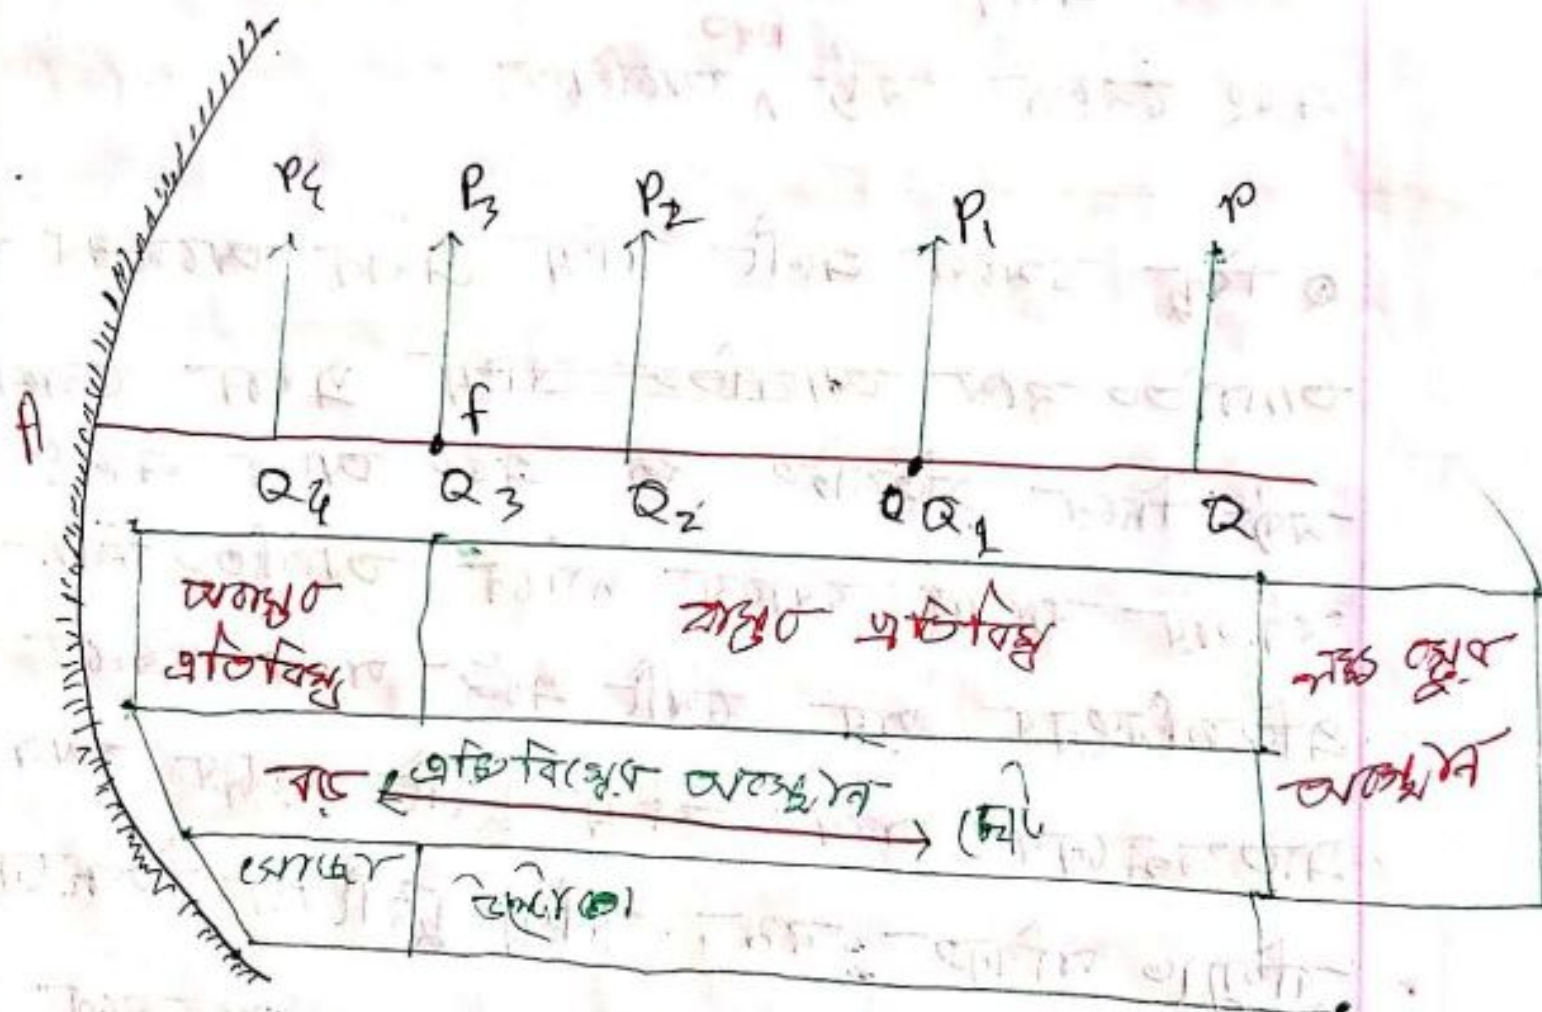 P4 P3 P2 P1 P
A f
Q4 Q3 Q2 Q Q1 Q
অবাস্তব
প্রতিবিম্ব
বাস্তব প্রতিবিম্ব
লক্ষ্য বস্তুর
অবস্থান
বড় প্রতিবিম্বের অবস্থান ছোট
সোজা
উল্টো